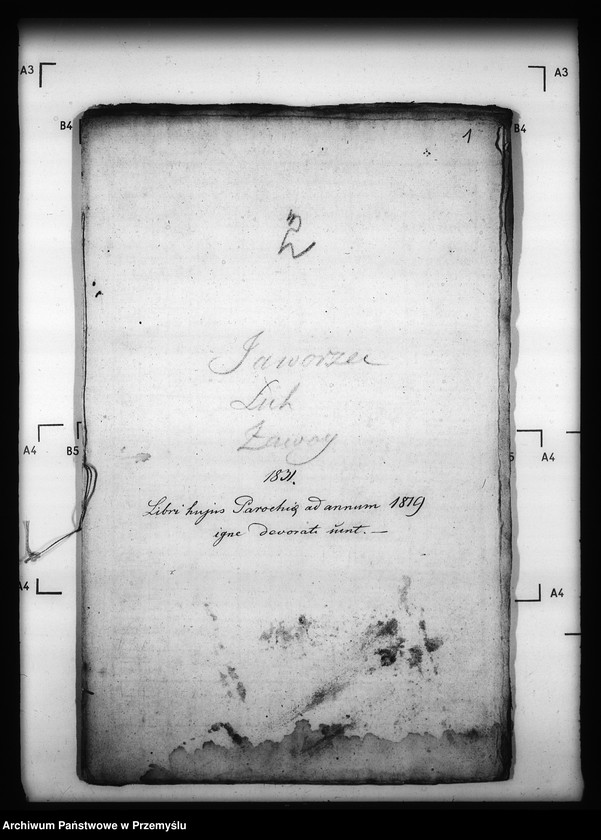 A3
A3
B4
B4
1
2
Jaworzec
Łuh
Zawoy
A4
B5
5
A4
1831.
Libri hujus Parochię ad annum 1819
igne devorati sunt. —
A4
A4
Archiwum Państwowe w Przemyślu